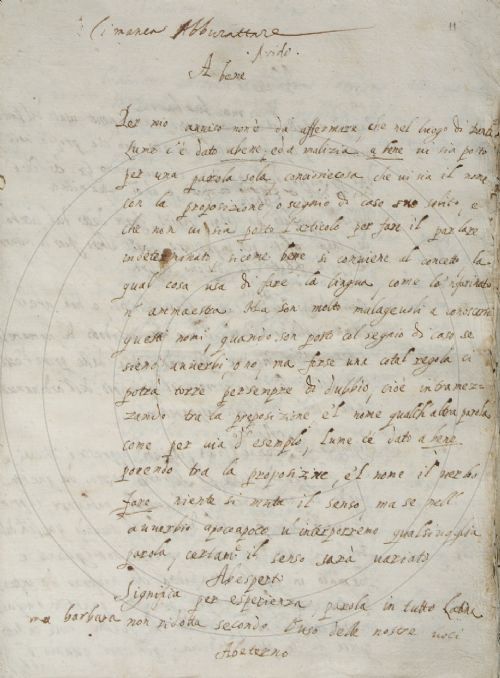 Ci manca Abburattare
11
Avido.
A bene
Per mio avviso non è da affermare, che nel luogo di
Lume c'è dato a bene, ed a malizia a bene vi sia posto
per una parola sola, che vi sia il nome
con la proposizione o segnio di caso unito, e
che non vi sia posto l'articolo per fare il parlare
indeterminato, sicome bene si conviene al conceto la
qual cosa usa di fare la lingua, come lo 'nfarinato
n' ammaestra. Ma son molto malagevoli a conoscere
questi nomi, quando son posti col segnio di caso se
sieno avverbi o no, ma forse una cotal regola ci
potrà torre persempre di dubbio, cioè intramez-
zando tra la preposizione e'l nome qualch'altra parola
come per via d'esempio, Lume c'è dato a bene
ponendo tra la proposizine, e'l nome il verbo
fare niente si muta il senso ma se nell
avverbio apocapoco v'interporremo qualsivoglia
parola, certam il senso sarà variato
Abesperto
Significa per esperienza parola in tutto Latina
ma barbara non ridotta secondo l'uso delle nostre voci
Abeterno